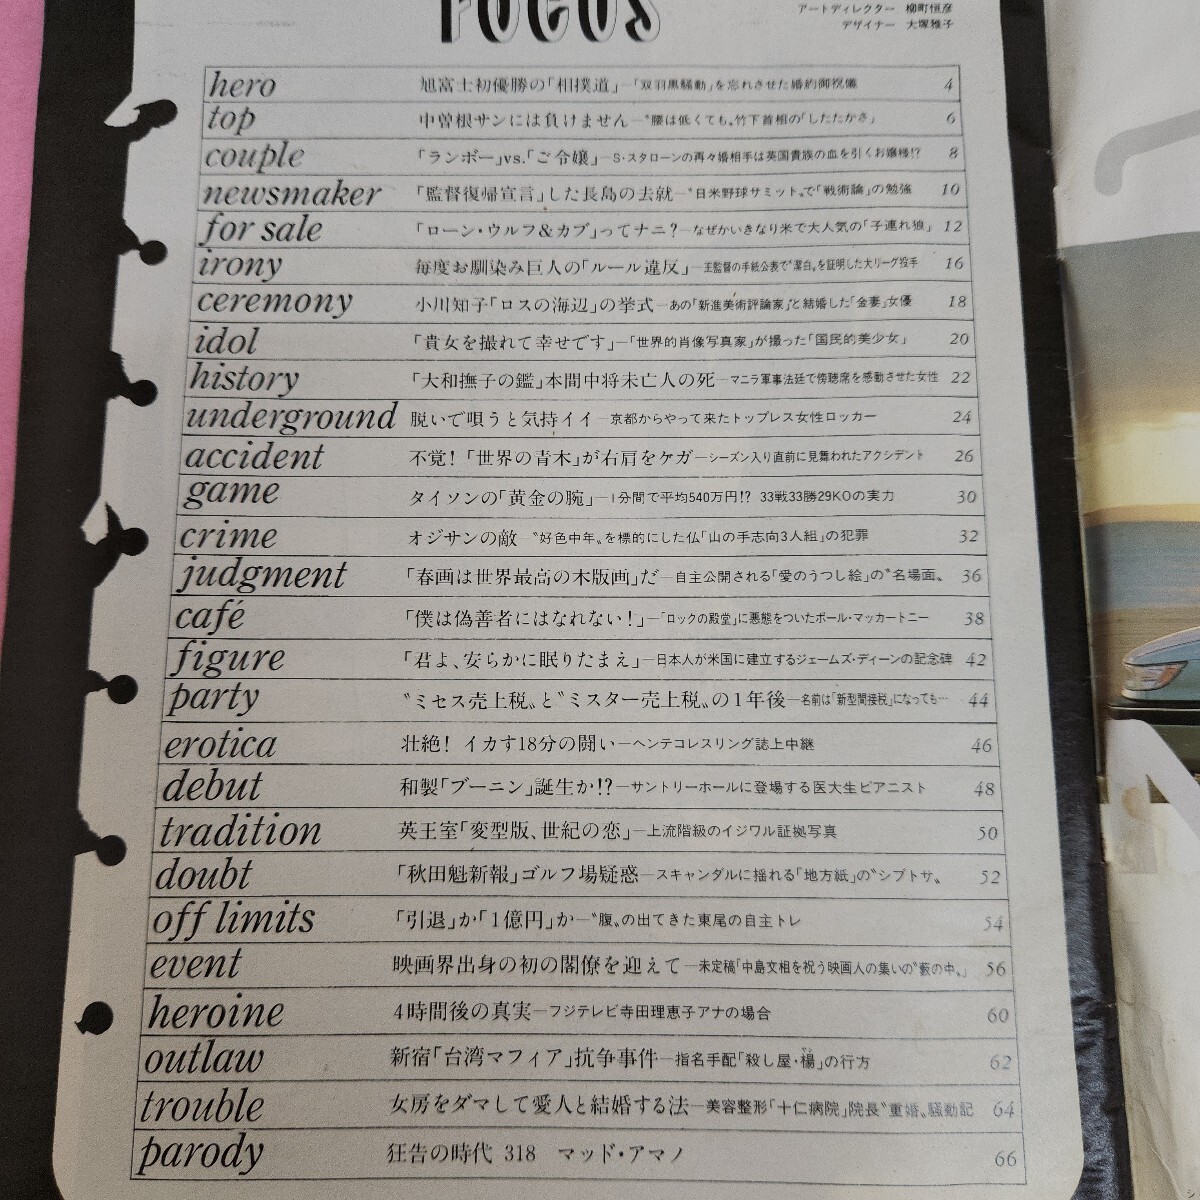 FOCUS
アートディレクター 柳町恒彦
デザイナー 大塚雅子
hero 旭富士初優勝の「相撲道」―「双羽黒騒動」を忘れさせた婚約御祝儀 4
top 中曽根サンには負けません―〝腰は低くても〟竹下首相の「したたかさ」 6
couple 「ランボー」vs.「ご令嬢」―S・スタローンの再々婚相手は英国貴族の血を引くお嬢様!? 8
newsmaker 「監督復帰宣言」した長島の去就―〝日米野球サミット〟で「戦術論」の勉強 10
for sale 「ローン・ウルフ&カブ」ってナニ?―なぜかいきなり米で大人気の「子連れ狼」 12
irony 毎度お馴染み巨人の「ルール違反」―王監督の手紙公表で〝潔白〟を証明した大リーグ投手 16
ceremony 小川知子「ロスの海辺」の挙式―あの「新進美術評論家」と結婚した「金妻」女優 18
idol 「貴女を撮れて幸せです」―「世界的肖像写真家」が撮った「国民的美少女」 20
history 「大和撫子の鑑」本間中将未亡人の死―マニラ軍事法廷で傍聴席を感動させた女性 22
underground 脱いで唄うと気持イイ―京都からやって来たトップレス女性ロッカー 24
accident 不覚!「世界の青木」が右肩をケガ―シーズン入り直前に見舞われたアクシデント 26
game タイソンの「黄金の腕」―1分間で平均540万円!? 33戦33勝29KOの実力 30
crime オジサンの敵―〝好色中年〟を標的にした仏「山の手志向3人組」の犯罪 32
judgment 「春画は世界最高の木版画」だ―自主公開される「愛のうつし絵」の〝名場面〟 36
café 「僕は偽善者にはなれない!」―「ロックの殿堂」に悪態をついたポール・マッカートニー 38
figure 「君よ、安らかに眠りたまえ」―日本人が米国に建立するジェームズ・ディーンの記念碑 42
party 〝ミセス売上税〟と〝ミスター売上税〟の1年後―名前は「新型間接税」になっても… 44
erotica 壮絶! イカす18分の闘い―ヘンテコレスリング誌上中継 46
debut 和製「ブーニン」誕生か!?―サントリーホールに登場する医大生ピアニスト 48
tradition 英王室「変型版、世紀の恋」―上流階級のイジワル証拠写真 50
doubt 「秋田魁新報」ゴルフ場疑惑―スキャンダルに揺れる「地方紙」の〝シブトサ〟 52
off limits 「引退」か「1億円」か―〝腹〟の出てきた東尾の自主トレ 54
event 映画界出身の初の閣僚を迎えて―未定稿「中島文相を祝う映画人の集いの〝藪の中〟」 56
heroine 4時間後の真実―フジテレビ寺田理恵子アナの場合 60
outlaw 新宿「台湾マフィア」抗争事件―指名手配「殺し屋・楊」の行方 62
trouble 女房をダマして愛人と結婚する法―美容整形「十仁病院」院長〝重婚〟騒動記 64
parody 狂告の時代 318 マッド・アマノ 66